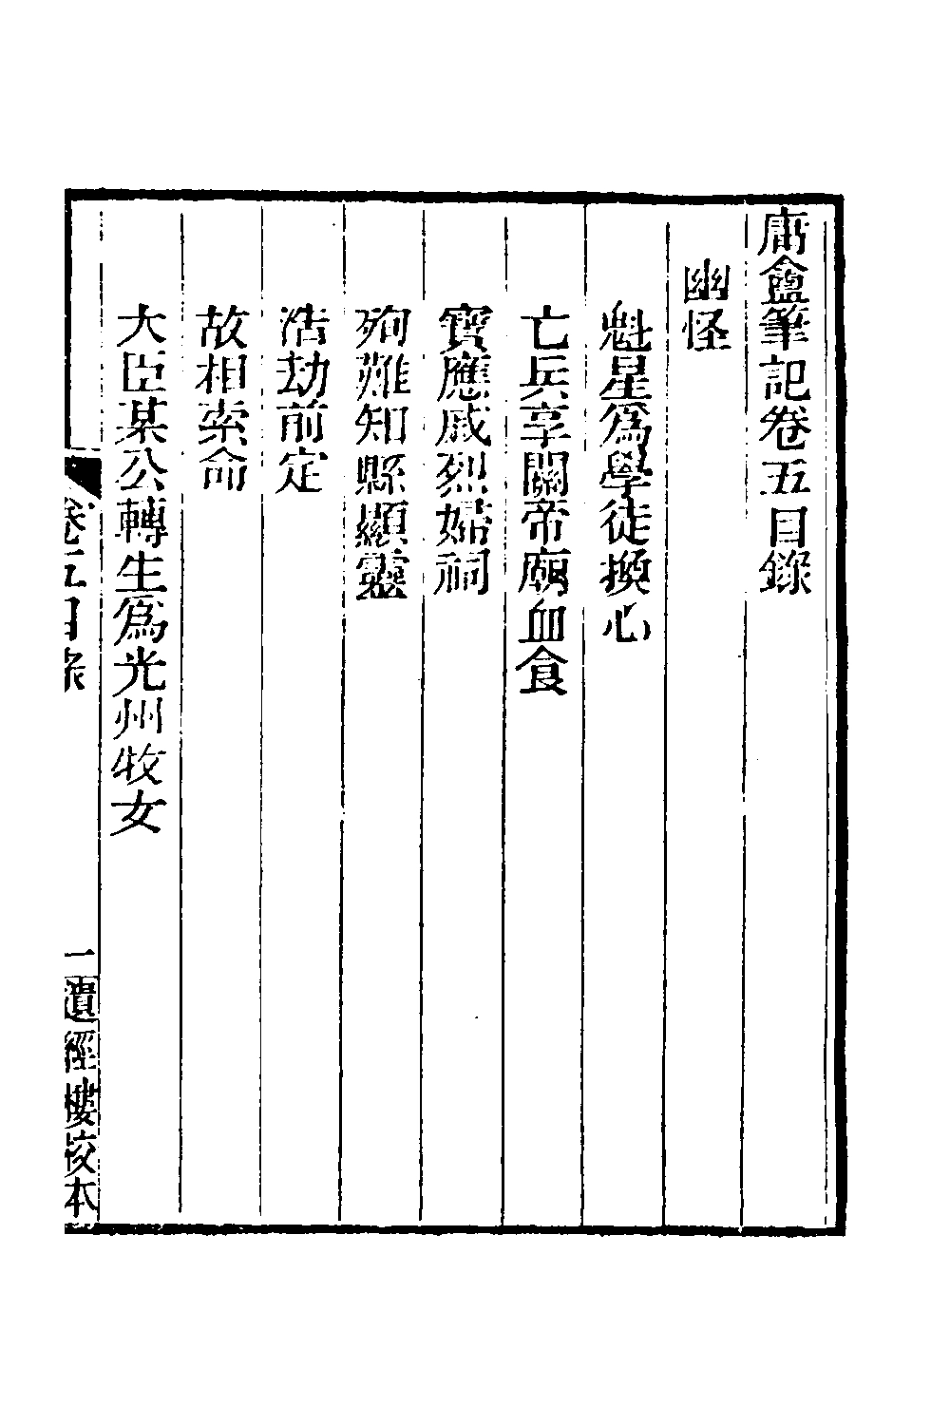 庸盦筆記卷五目錄
幽怪
魁星爲學徒換心
亡兵享關帝廟血食
寶應戚烈婦祠
殉難知縣顯靈
浩劫前定
故相索命
大臣某公轉生爲光州牧女
卷五目錄
一
遺經樓校本